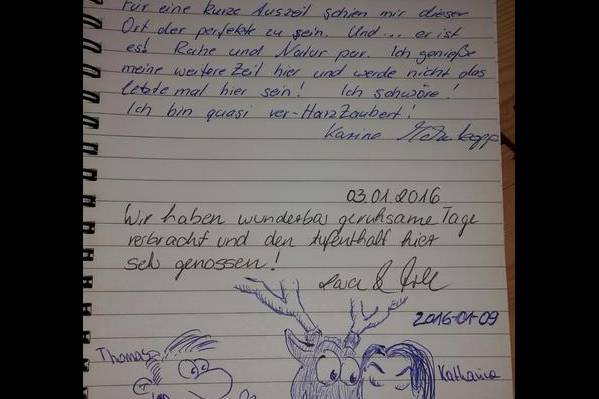 Für eine kurze Auszeit schien mir dieser
Ort der perfekte zu sein. Und... er ist
es! Ruhe und Natur pur. Ich genieße
meine weitere Zeit hier und werde nicht das
letzte mal hier sein! Ich schwöre!
Ich bin quasi ver-HarzZaubert!
Karine
03.01.2016
Wir haben wunderbar geruhsame Tage
verbracht und den Aufenthalt hier
sehr genossen!
&
2016-01-09
Thomas
Katharina